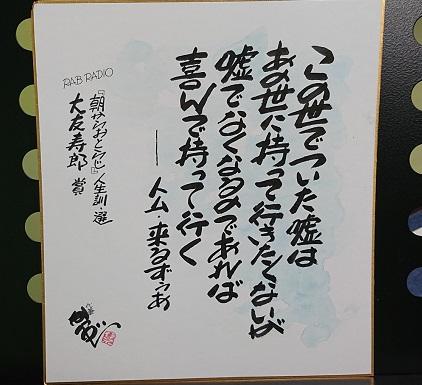 この世でついた嘘は
あの世に持って行きたくないが
嘘でなくなるのであれば
喜んで持って行く
── トム・来るずらあ
RAB RADIO
『朝からおとらじ』人生訓・選
大友寿郎 賞